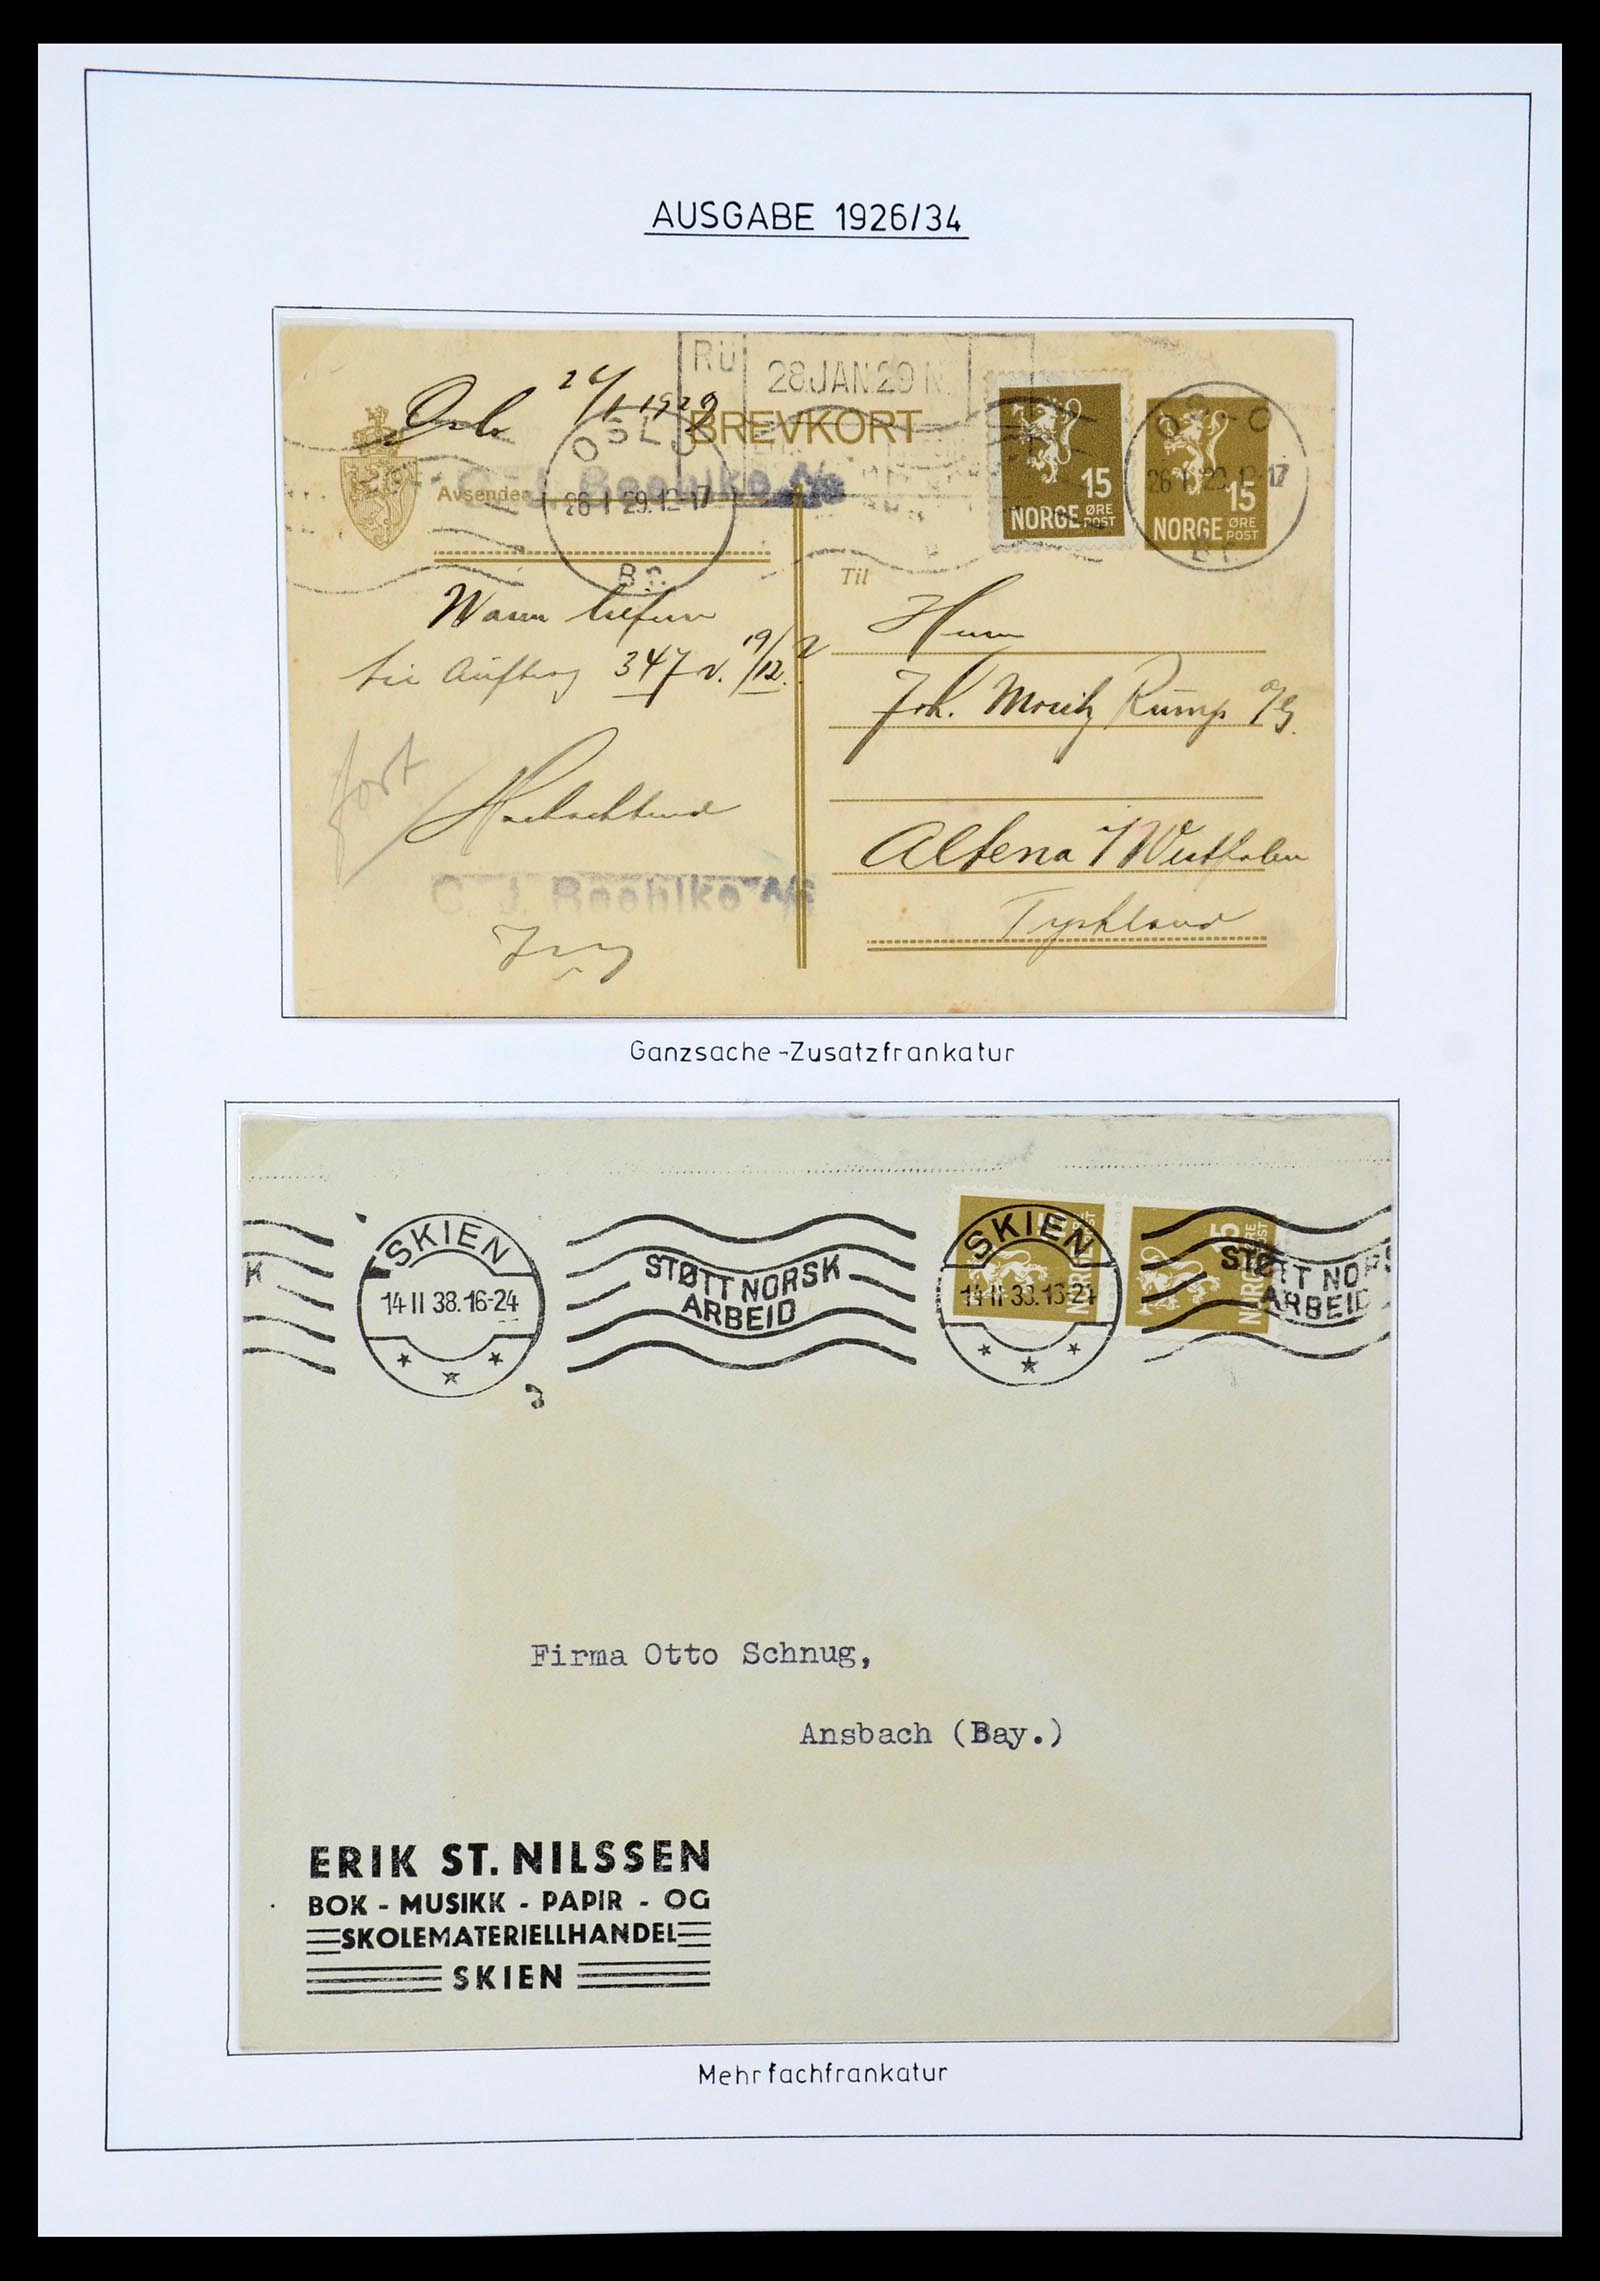 AUSGABE 1926/34
RÜ
28.JAN.29 N
Oslo 26/1 1929
BREVKORT
OSLO
26 I 29.12-17
Br.
Avsender
C. J. Boehlke A/S
15
NORGE ØRE POST
OSLO
26 I 29.12-17
Br.
15
NORGE ØRE POST
Til
Wann liefern
Sie Auftrag 347 v. 19/12.?
Herrn
Joh. Moritz Rump A/G.
fort
Hochachtend
Altena i/Westfalen
C. J. Boehlke A/S
Tyskland
Ganzsache-Zusatzfrankatur
K
SKIEN
14 II 38.16-24
STØTT NORSK
ARBEID
SKIEN
14 II 38.16-24
15
NORGE ØRE POST
15
NORGE ØRE POST
STØTT NORS
ARBEID
Firma Otto Schnug,
Ansbach (Bay.)
ERIK ST. NILSSEN
BOK - MUSIKK - PAPIR - OG
SKOLEMATERIELLHANDEL
SKIEN
Mehrfachfrankatur